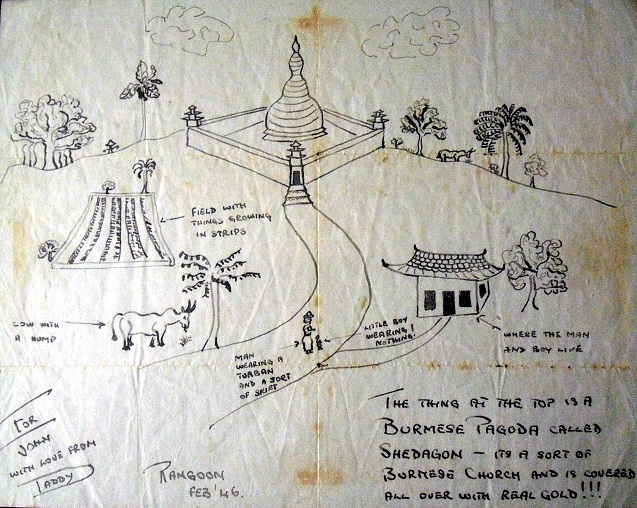 FIELD WITH
THINGS GROWING
IN STRIPS
COW WITH
A HUMP
MAN
WEARING A
TURBAN
AND A SORT
OF SKIRT
LITTLE BOY
WEARING
NOTHING.
WHERE THE MAN
AND BOY LIVE
FOR
JOHN
WITH LOVE FROM
DADDY
RANGOON
FEB '46.
THE THING AT THE TOP IS A
BURMESE PAGODA CALLED
SHEDAGON – ITS A SORT OF
BURMESE CHURCH AND IS COVERED
ALL OVER WITH REAL GOLD!!!